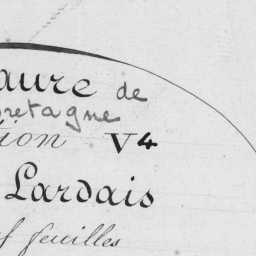 aure de
bretagne
tion V4
Lardais
f feuilles